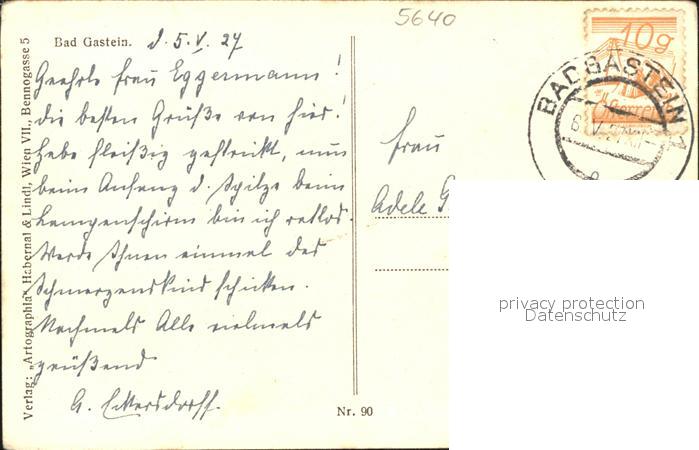 5640
Bad Gastein. d. 5. V. 27
Geehrte Frau Eggermann!
die besten Grüße von hier!
Habe fleißig gestrickt, nun
beim Anfang d. Spitze beim
Lampenschirm bin ich ratlos.
Werde Ihnen einmal das
Schmerzenskind schicken.
Nochmals Alle vielmals
grüßend
G. Ekersdorff.
Verlag: „Artographia“ Habernal & Lindl, Wien VII., Bennogasse 5
Nr. 90
10g
BADGASTEIN 1
Frau
Adele G
privacy protection
Datenschutz